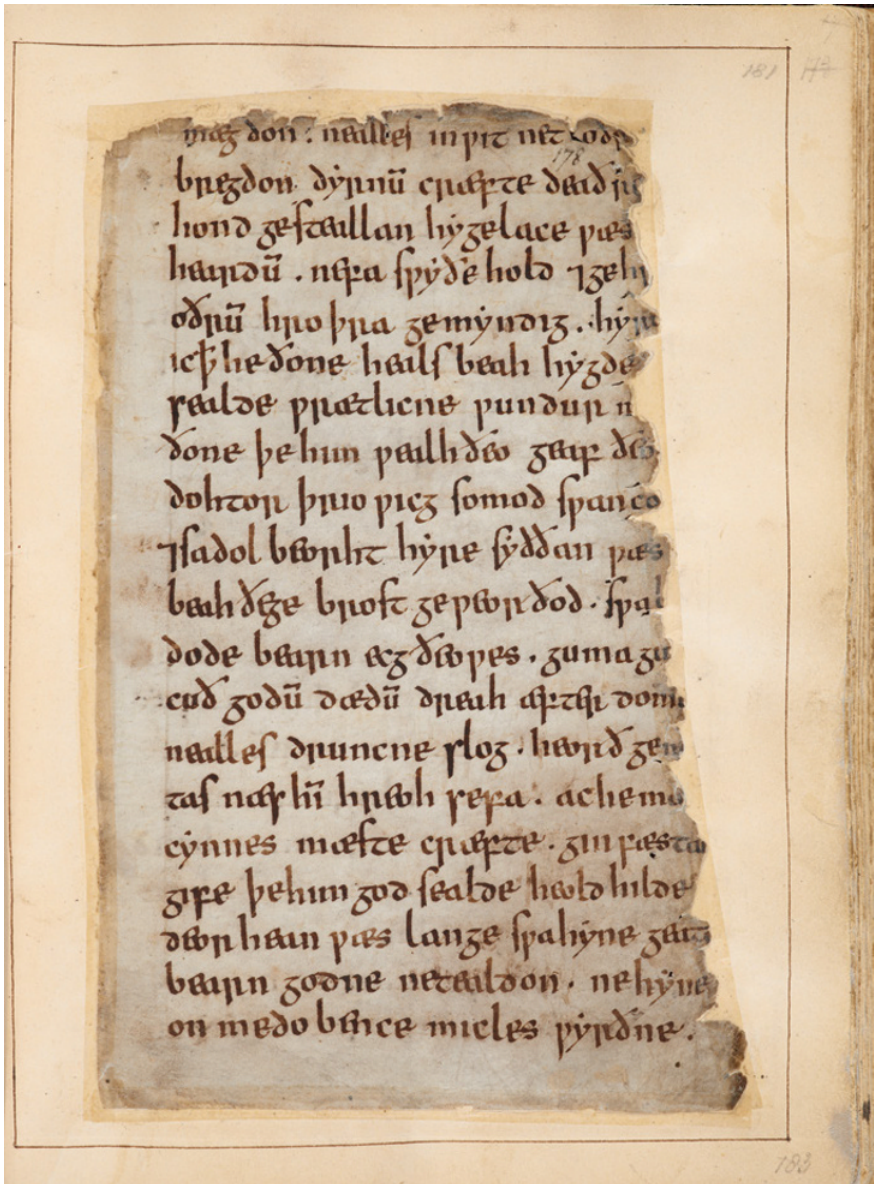 181
mæg don . nealles inƿit net oðr
178
bregdon dyrnū cræfte deað re
hond gesteallan hygelace ƿæs
heardū . nefa sƿyðe hold ⁊ geh
oðrū hro þra gemyndig . hyrde
ic ꝥ he ðone heals beah hygde
sealde ƿrætlicne ƿundur
ðone þe him ƿealh ðeo geaf ðeo
dohtor þrio ƿicg somod sƿanco
⁊ sadol beorht hyre syððan ƿæs
beah ðege brost geƿeorðod . sƿa
dode bearn ecg ðeoƿes . guma gu
cuð godū dædū dreah æfter dome
nealles druncne slog . heorð gen
tas næs hī hreoh sefa . ac he man
cynnes mæste cræfte . gin fæstan
gife þe him god sealde heold hilde
deor hean ƿæs lange sƿa hyne geata
bearn godne ne tealdon . ne hyne
on medo bence micles ƿyrðne .
183